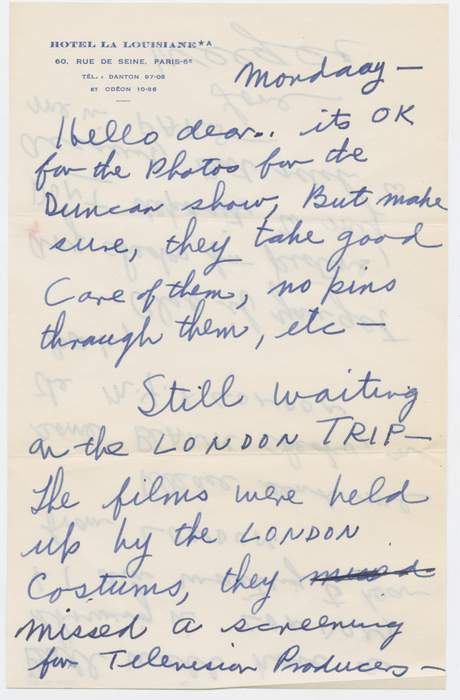 HOTEL LA LOUISIANE★A
60, RUE DE SEINE, PARIS-6E
TÉL. : DANTON 97-08
ET ODÉON 10-86
Mondaay—
Hello dear.. its OK
for the Photos for the
Duncan show, But make
sure, they take good
Care of them, no pins
through them, etc—
Still waiting
on the LONDON TRIP—
The films were held
up by the LONDON
Costums, they missed
missed a screening
for Television Producers—